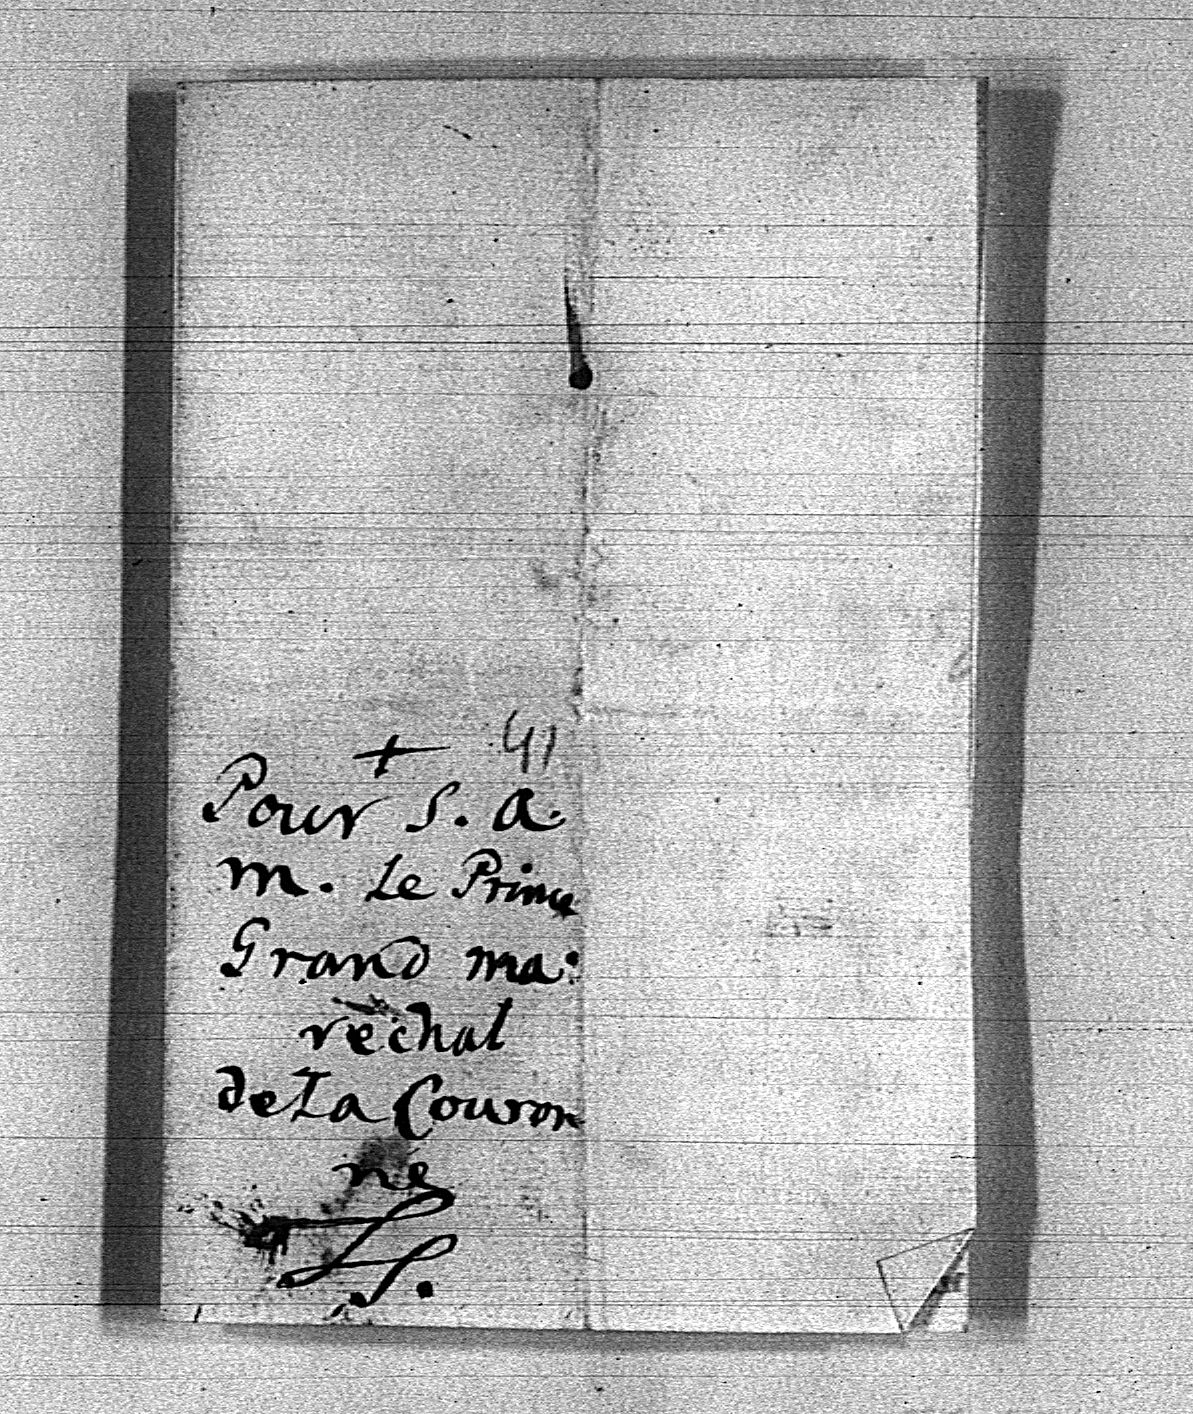 + 41
Pour S. a.
m. Le Prince
Grand ma:
rechal
de La Couron
ne